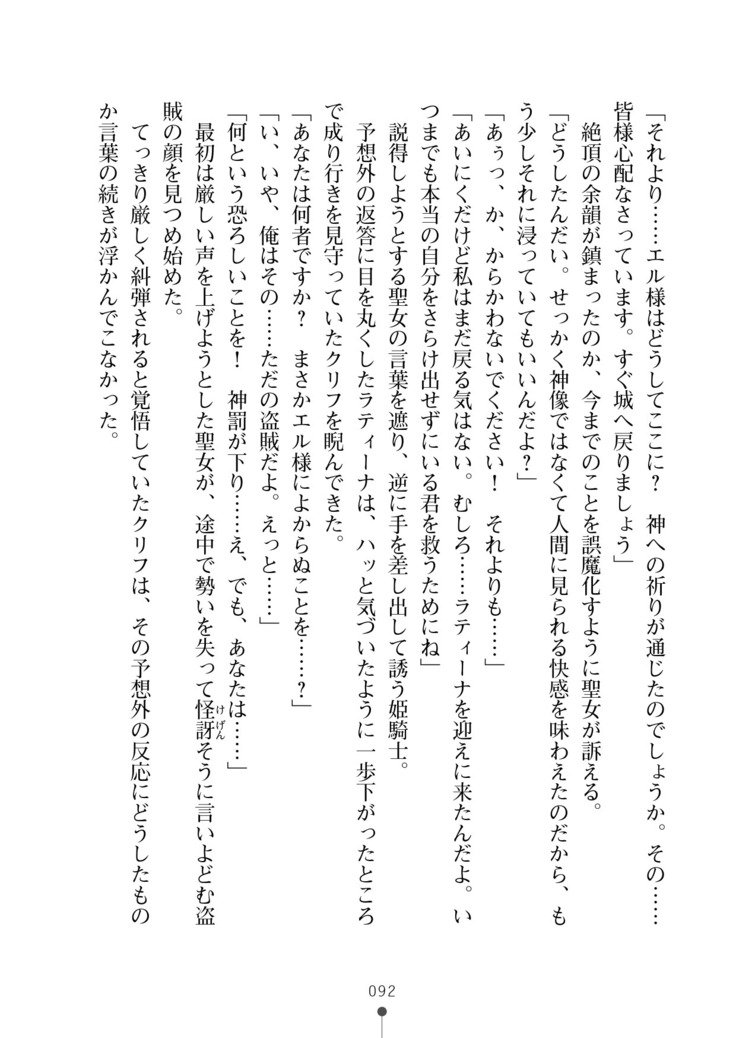 「それより……エル様はどうしてここに？　神への祈りが通じたのでしょうか。その……
皆様心配なさっています。すぐ城へ戻りましょう」
　絶頂の余韻が鎮まったのか、今までのことを誤魔化すように聖女が訴える。
「どうしたんだい。せっかく神像ではなくて人間に見られる快感を味わえたのだから、も
う少しそれに浸っていてもいいんだよ？」
「あぅっ、か、からかわないでください！　それよりも……」
「あいにくだけど私はまだ戻る気はない。むしろ……ラティーナを迎えに来たんだよ。い
つまでも本当の自分をさらけ出せずにいる君を救うためにね」
　説得しようとする聖女の言葉を遮り、逆に手を差し出して誘う姫騎士。
　予想外の返答に目を丸くしたラティーナは、ハッと気づいたように一歩下がったところ
で成り行きを見守っていたクリフを睨んできた。
「あなたは何者ですか？　まさかエル様によからぬことを……？」
「い、いや、俺はその……ただの盗賊だよ。えっと……」
「何という恐ろしいことを！　神罰が下り……え、でも、あなたは……」
　最初は厳しい声を上げようとした聖女が、途中で勢いを失って怪訝そうに言いよどむ盗
けげん
賊の顔を見つめ始めた。
　てっきり厳しく糾弾されると覚悟していたクリフは、その予想外の反応にどうしたもの
か言葉の続きが浮かんでこなかった。
092